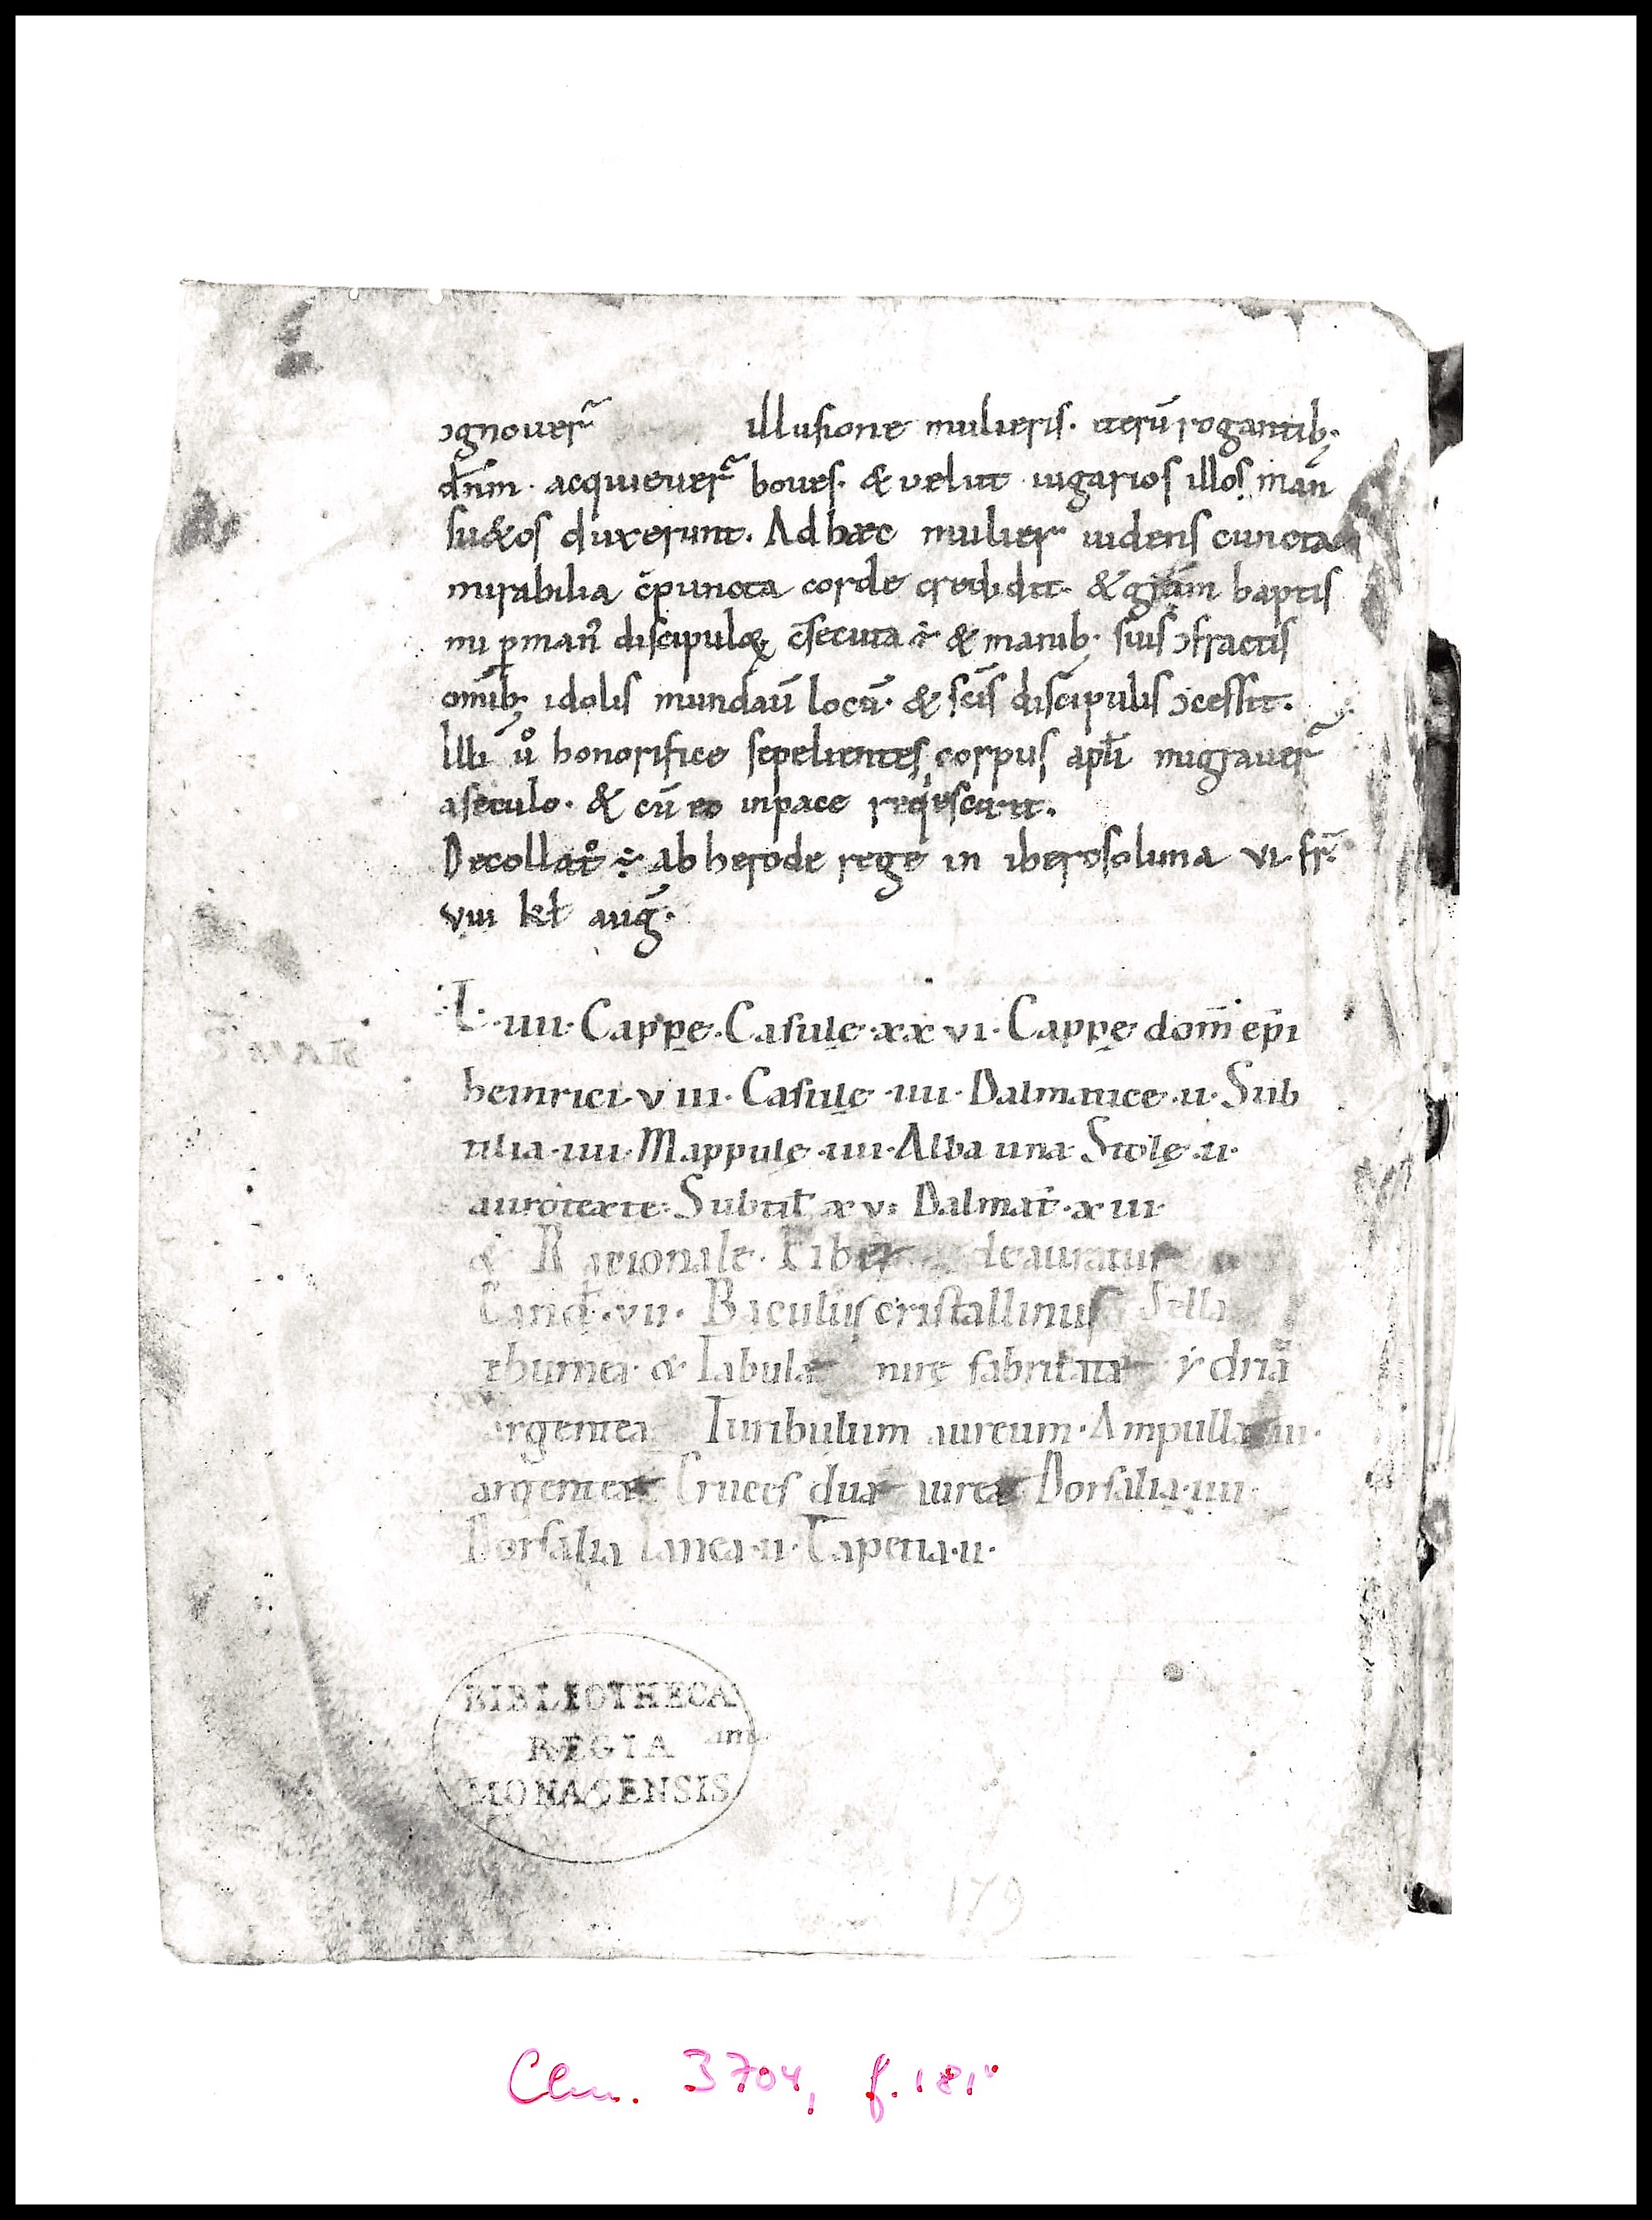 ɔgnouer̃ illusione mulieris. iterū rogantib;
dn̄m. acquieuer̃ boues. & uelut iugarios illos man
su&os duxerunt. Ad hæc mulier uidens cuncta
mirabilia c̄puncta corde credidit. & gr̄am baptis
mi p̱ man̄ discipuloꝝ c̄secuta ÷ & manib; suis ɔfractis
om̄ib; idolis mundau̅ locū. & sc̄is discipulis ɔcessit.
Illi ů honorifice sepelientes corpus apl̄i migrauer̃
a seculo. & cū eo in pace req̇escunt.
Decollat᷒ ÷ ab herode rege in iherosolima VI fr̄.
VIII kł aug̅.
L. IIII. Cappę. Casulę. XXVI. Cappę dom̄ ep̄i
heinrici. VIII. Casulę. IIII. Dalmatice. II. Sub
tilia. IIII. Mappulę. IIII. Alba una. Stolę. II.
auro texte. Subtił XV. Dalmat̄. XIII.
& Rationale. Liber deauratus
Cand̄. VII. Baculus cristallinus Sella
eburnea. & Tabula mirę fabricata ydria
argentea Turibulum aureum. Ampullæ
argenteæ Cruces duæ aureæ Dorsalia. IIII.
Dorsalia lanea. II. Tapetia. II.
MAR
BIBLIOTHECA
REGIA
MONACENSIS
179
Clm. 3704, f. 181r